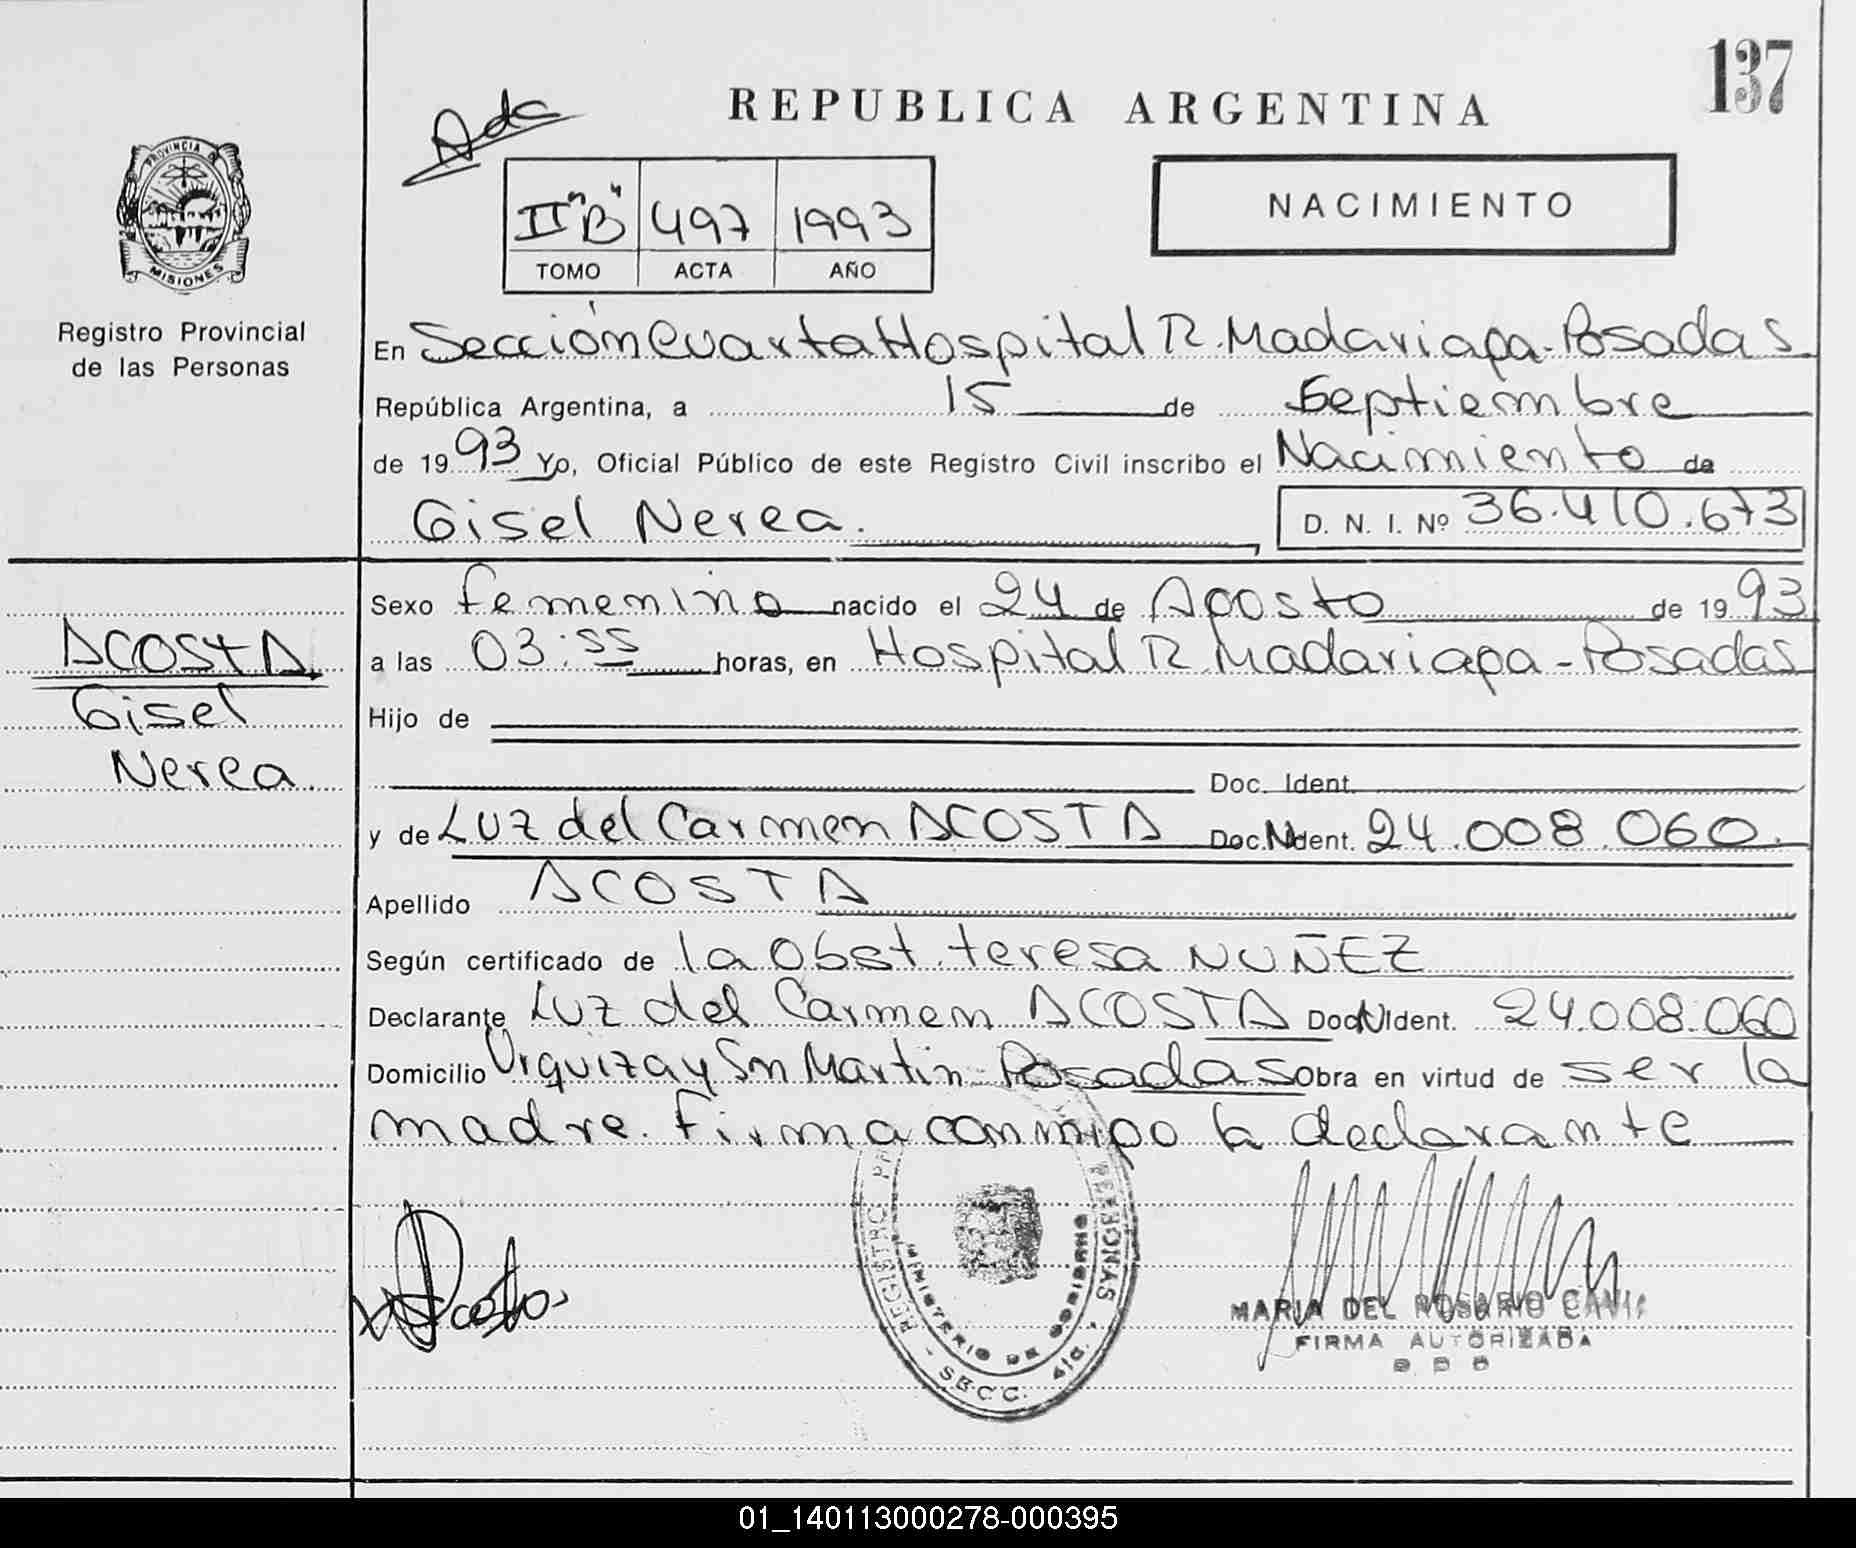 137
REPUBLICA ARGENTINA
Adc
PROVINCIA DE
MISIONES
Registro Provincial
de las Personas
NACIMIENTO
II "B" 497 1993
TOMO ACTA AÑO
En Sección Cuarta Hospital R. Madariaga - Posadas
República Argentina, a 15 de Septiembre
de 1993 Yo, Oficial Público de este Registro Civil inscribo el Nacimiento de
Gisel Nerea. D. N. I. Nº 36.410.673
ACOSTA
Gisel
Nerea.
Sexo femenino nacido el 24 de Agosto de 1993
a las 03:55 horas, en Hospital R. Madariaga - Posadas
Hijo de
Doc. Ident.
y de Luz del Carmen ACOSTA Doc. N Ident. 24.008.060.
Apellido ACOSTA
Según certificado de la Obst. teresa NUÑEZ
Declarante Luz del Carmen ACOSTA Doc. N Ident. 24.008.060
Domicilio Urquiza y Sn Martin - Posadas Obra en virtud de ser la
madre. firma conmigo la declarante
REGISTRO PERSONAS
MINISTERIO DE GOBIERNO
- SECC. 4ta. -
MARIA DEL ROSARIO
FIRMA AUTORIZADA
01_140113000278-000395